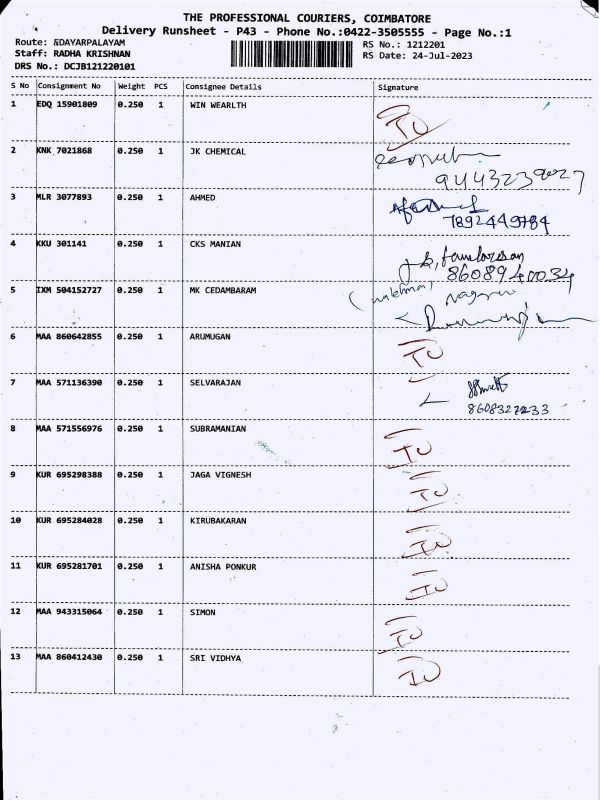 THE PROFESSIONAL COURIERS, COIMBATORE
Delivery Runsheet - P43 - Phone No.:0422-3505555 - Page No.:1
Route: EDAYARPALAYAM RS No.: 1212201
Staff: RADHA KRISHNAN RS Date: 24-Jul-2023
DRS No.: DCJB121220101
S No Consignment No Weight PCS Consignee Details Signature
1 EDQ 15901809 0.250 1 WIN WEARLTH IU
2 KNK 7021868 0.250 1 JK CHEMICAL
3 MLR 3077893 0.250 1 AHMED
7892449784
4 KKU 301141 0.250 1 CKS MANIAN
8608940034
5 IXM 504152727 0.250 1 MK CEDAMBARAM
6 MAA 860642855 0.250 1 ARUMUGAN IU
7 MAA 571136390 0.250 1 SELVARAJAN
8608322233
8 MAA 571556976 0.250 1 SUBRAMANIAN IU
9 KUR 695298388 0.250 1 JAGA VIGNESH IU
10 KUR 695284028 0.250 1 KIRUBAKARAN IU
11 KUR 695281701 0.250 1 ANISHA PONKUR IU
12 MAA 943315064 0.250 1 SIMON IU
13 MAA 860412430 0.250 1 SRI VIDHYA IU